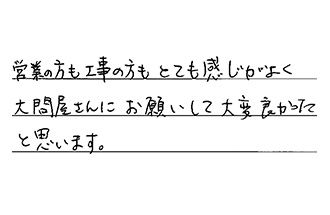 営業の方も工事の方もとても感じがよく
大問屋さんにお願いして大変良かった
と思います。